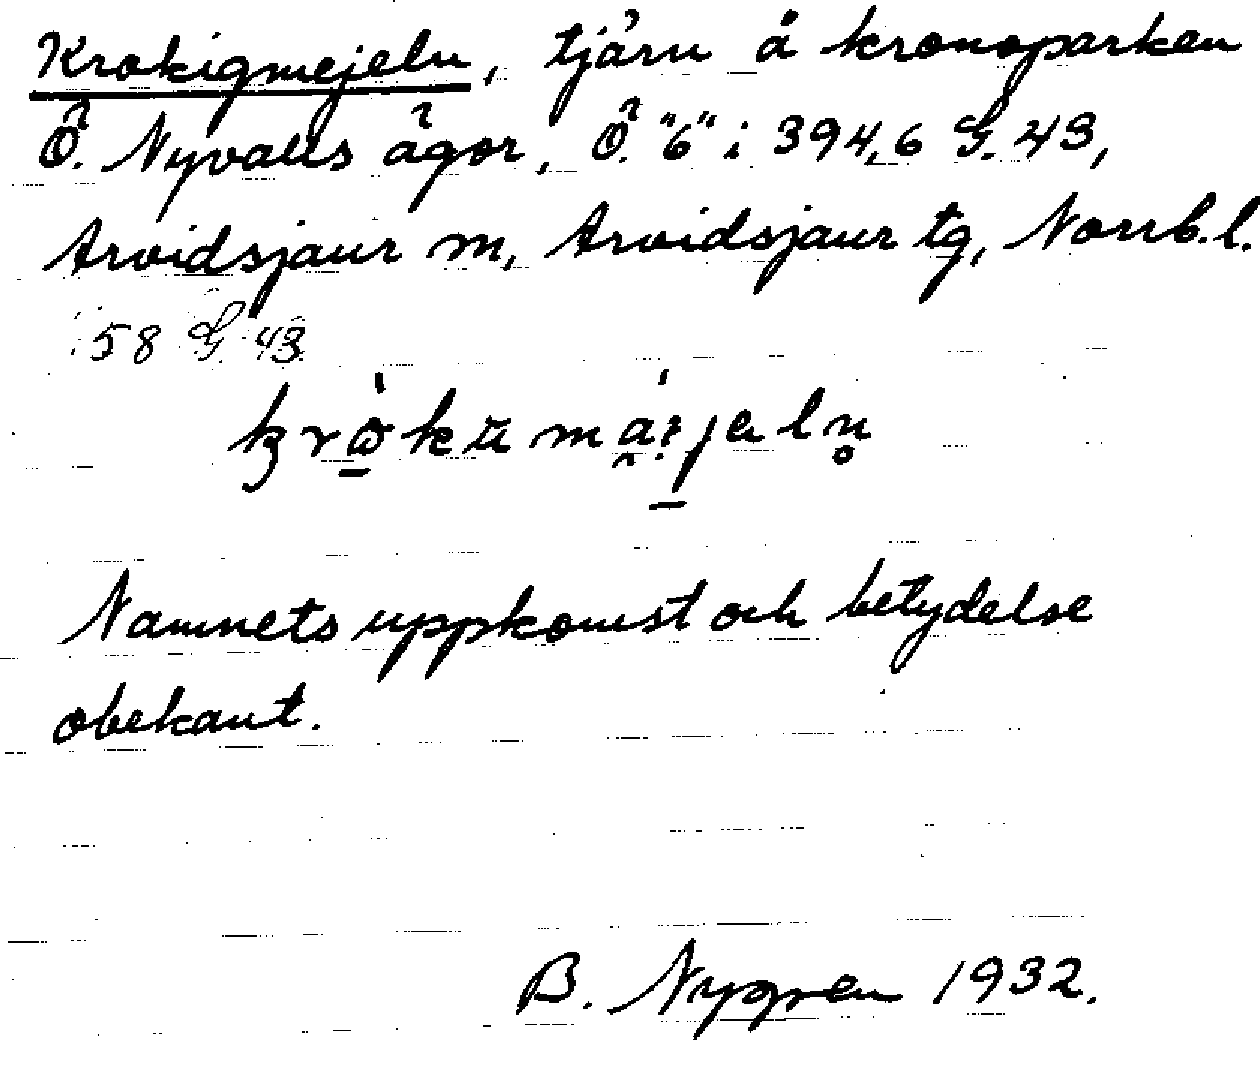 Krokigmejeln, tjärn å kronoparken
Ö. Nyvalls ägor, Ö. "6" i 394,6 G. 43,
Arvidsjaur m, Arvidsjaur tg, Norrb.l.
i 58 G 43.
Namnets uppkomst och betydelse
obekant.
B. Nygren 1932.